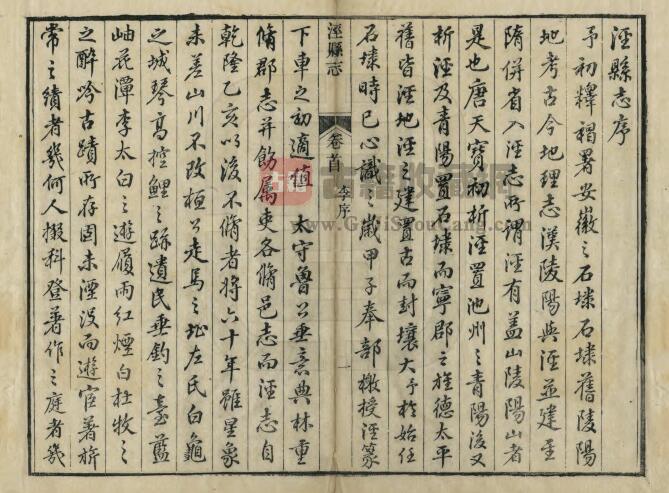 涇縣志序
予初釋褐署安徽之石埭石埭舊陵陽
地考古今地理志漢陵陽與涇並建至
隋併省入涇志所謂涇有蓋山陵陽山者
是也唐天寶初析涇置池州之青陽後又
析涇及青陽置石埭而寧郡之旌德太平
舊皆涇地涇之建置古而封壤大予於始任
石埭時已心識之歲甲子奉部檄授涇篆
涇縣志
卷首
李序
一
下車之初適值 太守魯公垂意典林重
脩郡志并飭属吏各脩邑志而涇志自
乾隆乙亥以後不脩者將六十年雖星象
未差山川不改桓公走馬之址左氏白龜
之城琴高控鯉之跡遺民垂釣之臺藍
岫花潭李太白之遊履雨紅煙白杜牧之
之醉吟古蹟所存固未湮没而遊宦著循
常之績者幾何人掇科登著作之庭者幾
www.GuJiShouCang.com